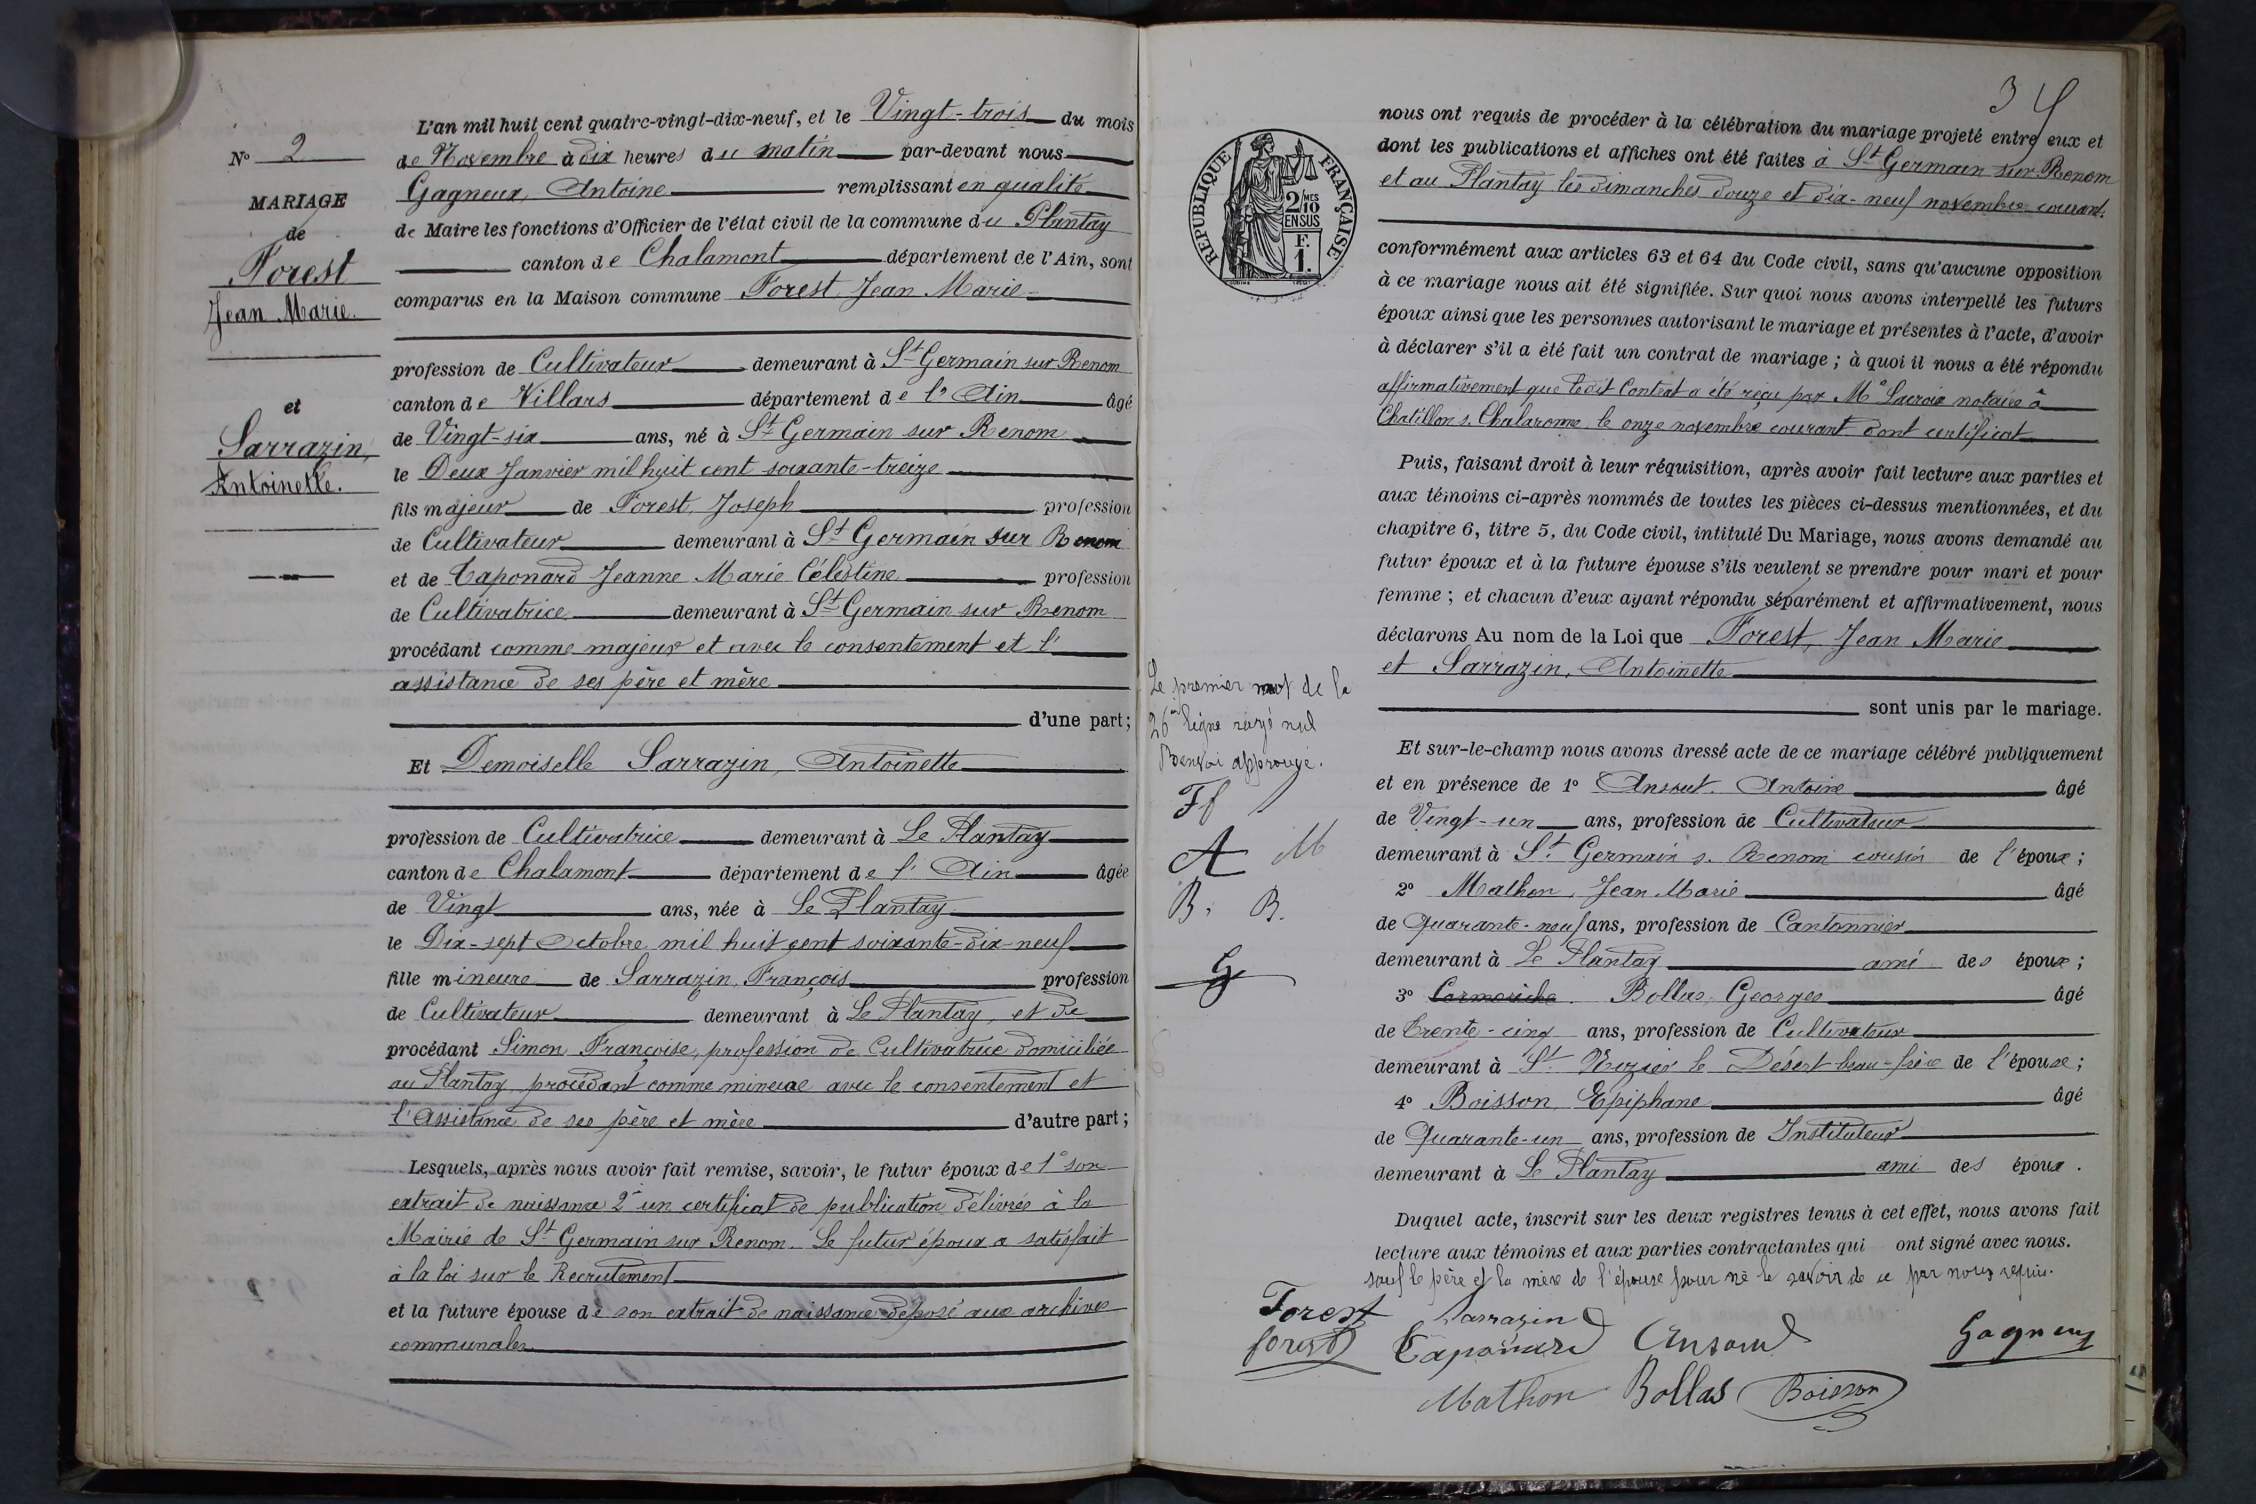 N° 2
MARIAGE
de
Forest
Jean Marie.
et
Sarrazin,
Antoinette.
L'an mil huit cent quatre-vingt-dix-neuf, et le Vingt-trois du mois
de Novembre à dix heures du matin par-devant nous
Gagneux, Antoine remplissant en qualité
de Maire les fonctions d'Officier de l'état civil de la commune du Plantay
canton de Chalamont département de l'Ain, sont
comparus en la Maison commune Forest, Jean Marie
profession de Cultivateur demeurant à St Germain sur Renom
canton de Villars département de l'Ain âgé
de Vingt-six ans, né à St Germain sur Renom
le Deux Janvier mil huit cent soixante-treize
fils majeur de Forest, Joseph profession
de Cultivateur demeurant à St Germain sur Renom
et de Taponard Jeanne Marie Célestine profession
de Cultivatrice demeurant à St Germain sur Renom
procédant comme majeur et avec le consentement et l'
assistance de ses père et mère
d'une part;
Et Demoiselle Sarrazin, Antoinette
profession de Cultivatrice demeurant à Le Plantay
canton de Chalamont département de l'Ain âgée
de Vingt ans, née à Le Plantay
le Dix-sept Octobre mil huit cent soixante-dix-neuf
fille mineure de Sarrazin, François profession
de Cultivateur demeurant à Le Plantay, et de
procédant Simon Françoise, profession de Cultivatrice domiciliée
au Plantay, procédant comme mineure avec le consentement et
l'assistance de ses père et mère d'autre part;
Lesquels, après nous avoir fait remise, savoir, le futur époux de 1° son
extrait de naissance 2° un certificat de publication délivrés à la
Mairie de St Germain sur Renom. Le futur époux a satisfait
à la loi sur le Recrutement
et la future épouse de son extrait de naissance déposé aux archives
communales
34
RÉPUBLIQUE FRANÇAISE
2/10 MES
EN SUS
F.
1.
nous ont requis de procéder à la célébration du mariage projeté entre eux et
dont les publications et affiches ont été faites à St Germain sur Renom
et au Plantay les dimanches douze et dix-neuf novembre courant.
conformément aux articles 63 et 64 du Code civil, sans qu'aucune opposition
à ce mariage nous ait été signifiée. Sur quoi nous avons interpellé les futurs
époux ainsi que les personnes autorisant le mariage et présentes à l'acte, d'avoir
à déclarer s'il a été fait un contrat de mariage; à quoi il nous a été répondu
affirmativement que ledit Contrat a été reçu par Me Lacroix notaire à
Chatillon s. Chalaronne le onze novembre courant dont certificat
Puis, faisant droit à leur réquisition, après avoir fait lecture aux parties et
aux témoins ci-après nommés de toutes les pièces ci-dessus mentionnées, et du
chapitre 6, titre 5, du Code civil, intitulé Du Mariage, nous avons demandé au
futur époux et à la future épouse s'ils veulent se prendre pour mari et pour
femme; et chacun d'eux ayant répondu séparément et affirmativement, nous
déclarons Au nom de la Loi que Forest, Jean Marie
et Sarrazin, Antoinette
sont unis par le mariage.
Et sur-le-champ nous avons dressé acte de ce mariage célébré publiquement
et en présence de 1° Ansout. Antoine âgé
de Vingt-un ans, profession de Cultivateur
demeurant à St Germain s. Renom cousin de l'époux;
2° Mathon, Jean Marie âgé
de Quarante-neuf ans, profession de Cantonnier
demeurant à Le Plantay ami des époux;
3° Bollas, Georges âgé
de Trente-cinq ans, profession de Cultivateur
demeurant à St Nizier le Désert beau-frère de l'épouse;
4° Boisson, Epiphane âgé
de Quarante-un ans, profession de Instituteur
demeurant à Le Plantay ami des époux.
Duquel acte, inscrit sur les deux registres tenus à cet effet, nous avons fait
lecture aux témoins et aux parties contractantes qui ont signé avec nous.
sauf le père et la mère de l'épouse pour ne le savoir de ce par nous requis.
Le premier mot de la
26e ligne rayé nul
Renvoi approuvé.
Ff
A M
B. B.
G
Forest Sarrazin
forest Taponard Ansout Gagneux
Mathon Bollas Boisson